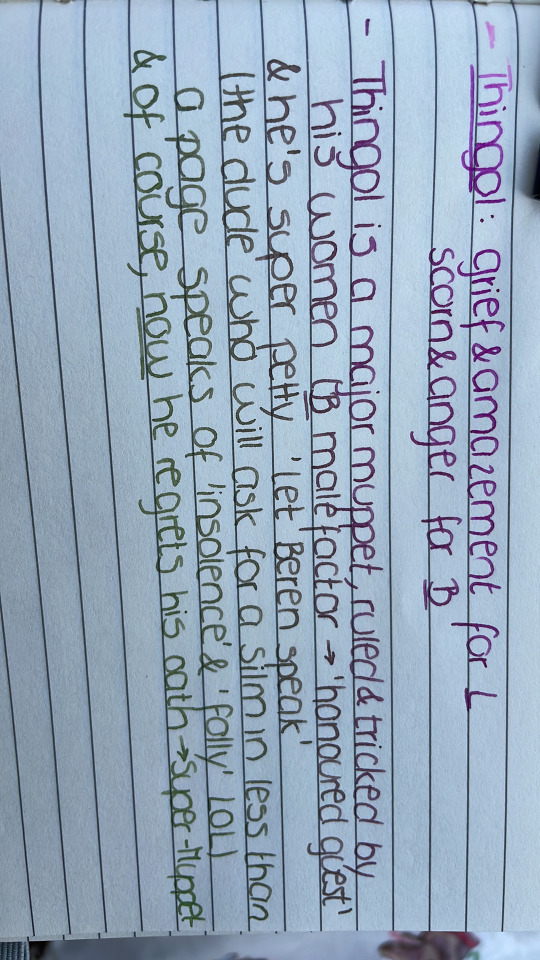 - Thingol: grief & amazement for L
scorn & anger for B
- Thingol is a major muppet, ruled & tricked by
his women (B malefactor → 'honoured guest'
& he's super petty 'let Beren speak'
(the dude who will ask for a Silm in less than
a page speaks of 'insolence' & 'folly' LOL)
& of course, now he regrets his oath → Super-Muppet